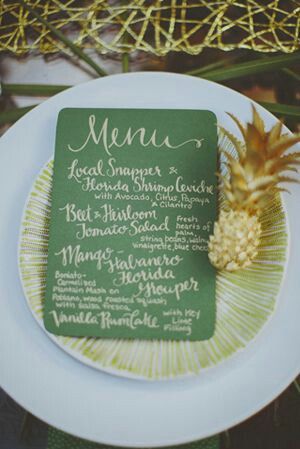 Menu
Local Snapper &
Florida Shrimp Ceviche
with Avocado, Citrus, Papaya
& Cilantro
Beet & Heirloom
Tomato Salad
fresh
hearts of
palm,
string beans, walnut
vinaigrette, blue cheese
Mango-
Habanero
Florida
Grouper
Boniato-
Carmelized
Plantain Mash on
Poblano, wood roasted squash
with salsa fresca
Vanilla Rum Cake
with Key
Lime
Filling